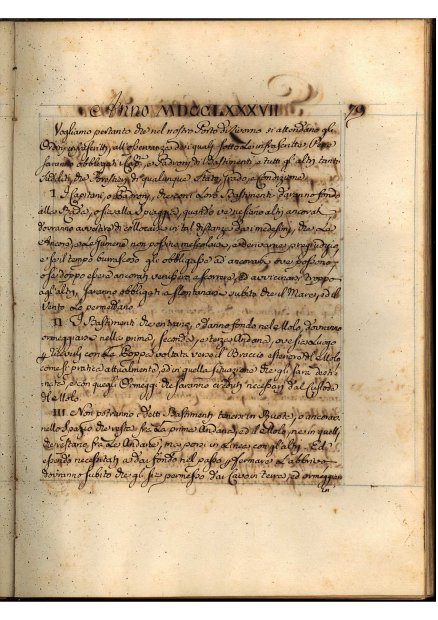 Anno MDCCLXXXVII 79
Vogliamo pertanto che nel nostro Porto di Livorno si attendano gli
Ordini infrascritti, all'osservanza dei quali sotto le infrascritte Pene
saranno obbligati i Cap.ni, o Padroni di Bastimenti, e tutti gl'altri tanto
Sudditi, che Forestieri di qualunque Stato, grado, e condizione.
I. I Capitani, o Padroni, che con i Loro Bastimenti daranno fondo
alla Rada, o sia alla Spiaggia, quando ve ne siano altri ancorati
dovranno avvertire di collocarsi in tal distanza dai medesimi, che Le
Ancore, e Le Gumene non possino mescolarsi, e derivarne pregiudizio,
e se il tempo burrascoso gli obbligasse ad ancorarsi ove possono,
o se doppo essersi ancorati venissero a ed avvicinarsi troppo
agl'altri, saranno obbligati a slontanarsi subito che il Mare, ed il
Vento Lo permettano.
II. I Bastimenti che entrano, o danno fondo nel Molo, dovranno
ormeggiarsi nella prima, seconda, e terza Andana, ove sia Luogo
per riceverli con La Poppa voltata verso il Braccio esteriore del Molo
come si pratica attualmente, ed in quella situazione che gli sarà desti-
nata, e con quegli Ormeggi che saranno creduti necessari dal Custode
del Molo.
III. Non potranno i detti Bastimenti tenersi in Ruota, o ancorarsi
nello Spazio che resta fra La prima Andana, ed il Molo, ne in quelli
che restano fra Le Andane, ma porsi in Linea con gl'altri. Ed
essendo necessitati a dar fondo nel passo, e fermare L'abbrivo
dovranno subito che gli sia permesso dar Cavo in terra, ed ormeggiarsi
in